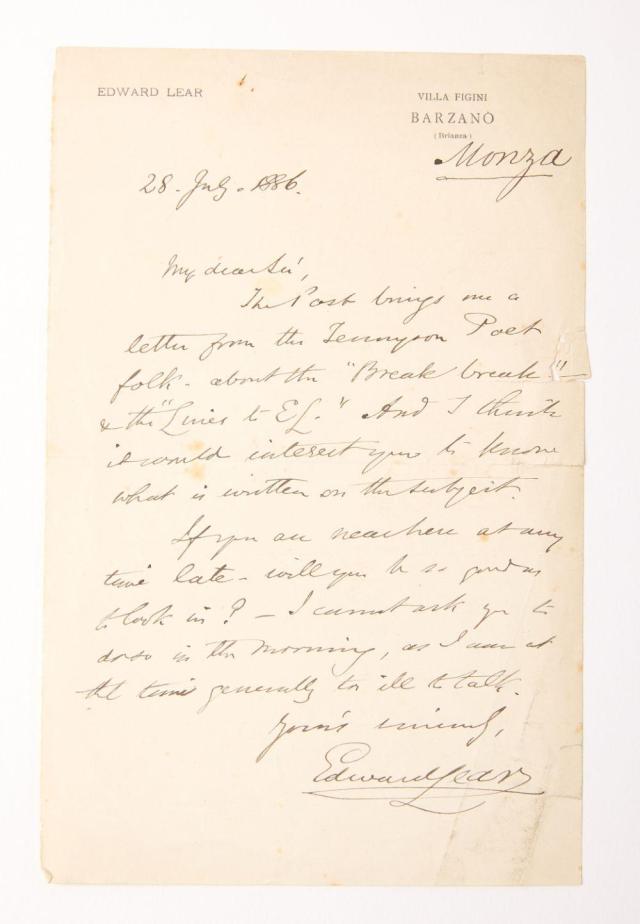 EDWARD LEAR
VILLA FIGINI
BARZANÒ
(Brianza)
Monza
28. July. 1886.
My dear Sir,
The Post brings me a
letter from the Tennyson Poet
folk - about the "Break break"
& the "Lines to EL." And I think
it would interest you to know
what is written on the subject.
If you are near here at any
time late - will you be so good as
to look in? - I cannot ask you to
do so in the morning, as I am at
tht time generally too ill to talk.
Yours sincerely,
Edward Lear